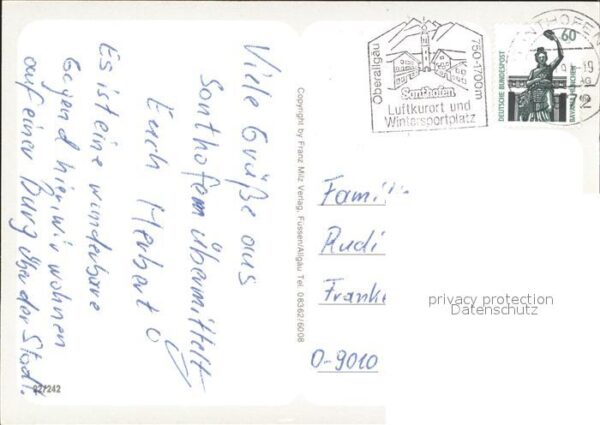 Viele Grüße aus
Sonthofen übermittelt
Euch Herbert
Es ist eine wunderbare
Gegend hier, wir wohnen
auf einer Burg über der Stadt.
92/242
Copyright by Franz Milz Verlag, Füssen/Allgäu Tel. 08362/6008
Oberallgäu
750-1700m
Sonthofen
Luftkurort und
Wintersportplatz
SONTHOFEN
60
DEUTSCHE BUNDESPOST
BAVARIA MÜNCHEN
Famil
Rudi
Frank
O-9010
privacy protection
Datenschutz